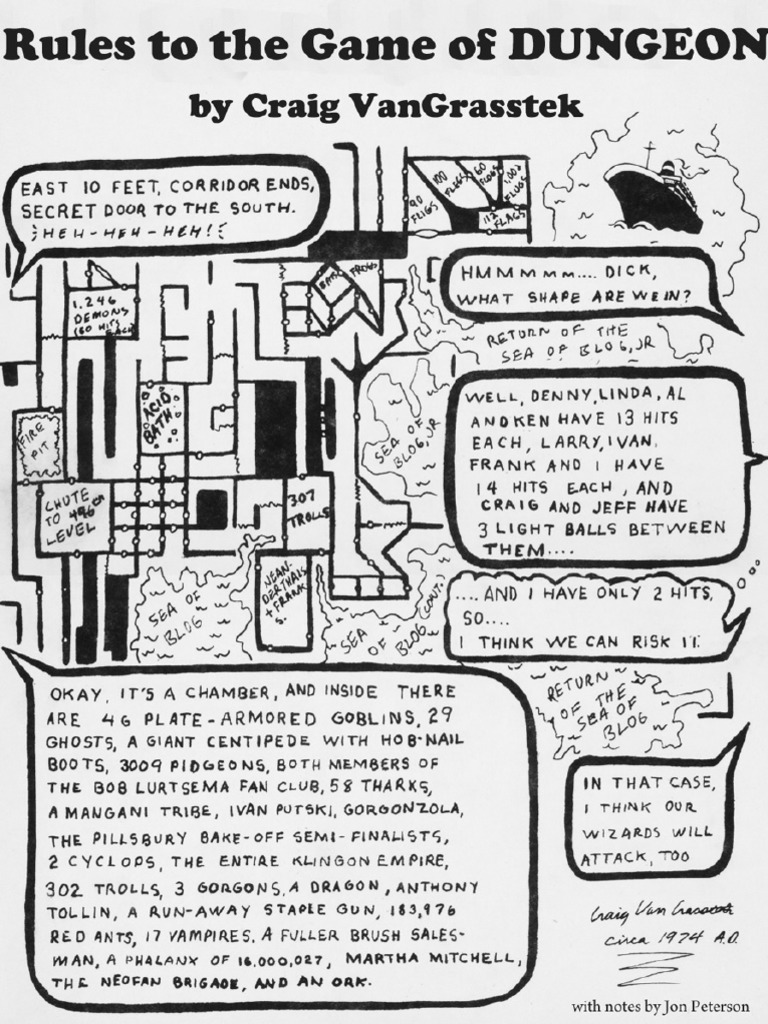 Rules to the Game of DUNGEON
by Craig VanGrasstek
EAST 10 FEET, CORRIDOR ENDS,
SECRET DOOR TO THE SOUTH.
HEH-HEH-HEH!
90
FLIGS
100
FLEGS
60
FLOGS
1,002
FLUGS
112
FLAGS
HMMMMM.... DICK,
WHAT SHAPE ARE WE IN?
1,246
DEMONS
(180 HITS
EACH)
BATS
FROGS
RETURN OF THE
SEA OF BLOG, JR
ACID
BATH
FIRE
PIT
SEA OF
BLOG, JR
WELL, DENNY, LINDA, AL
AND KEN HAVE 13 HITS
EACH, LARRY, IVAN,
FRANK AND I HAVE
14 HITS EACH, AND
CRAIG AND JEFF HAVE
3 LIGHT BALLS BETWEEN
THEM....
CHUTE
TO
LEVEL
307
TROLLS
NEAN-
DERTHALS
+ FRANK
S.
SEA OF
BLOG
SEA
OF BLOG (CONT.)
....AND I HAVE ONLY 2 HITS,
SO....
I THINK WE CAN RISK IT.
RETURN
OF THE
SEA OF
BLOG
OKAY, IT'S A CHAMBER, AND INSIDE THERE
ARE 46 PLATE-ARMORED GOBLINS, 29
GHOSTS, A GIANT CENTIPEDE WITH HOB-NAIL
BOOTS, 3009 PIDGEONS, BOTH MEMBERS OF
THE BOB LURTSEMA FAN CLUB, 58 THARKS,
A MANGANI TRIBE, IVAN PUTSKI, GORGONZOLA,
THE PILLSBURY BAKE-OFF SEMI-FINALISTS,
2 CYCLOPS, THE ENTIRE KLINGON EMPIRE,
302 TROLLS, 3 GORGONS, A DRAGON, ANTHONY
TOLLIN, A RUN-AWAY STAPLE GUN, 183,976
RED ANTS, 17 VAMPIRES, A FULLER BRUSH SALES-
MAN, A PHALANX OF 16,000,027, MARTHA MITCHELL,
THE NEOFAN BRIGADE, AND AN ORK.
IN THAT CASE,
I THINK OUR
WIZARDS WILL
ATTACK, TOO
Craig Van Grasstek
circa 1974 A.D.
with notes by Jon Peterson